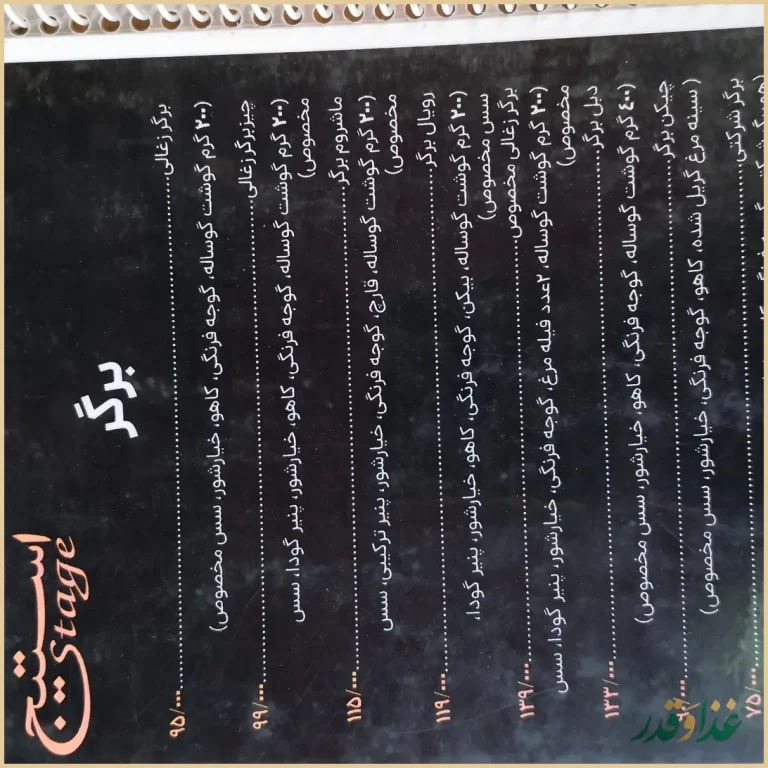 استیج
Stage
برگر
برگر زغالی ........ ۹۵/۰۰۰
(۲۰۰ گرم گوشت گوساله، گوجه فرنگی، کاهو، خیارشور، سس مخصوص)
چیزبرگر زغالی ........ ۹۹/۰۰۰
(۲۰۰ گرم گوشت گوساله، گوجه فرنگی، کاهو، خیارشور، پنیر گودا، سس
مخصوص)
ماشروم برگر ........ ۱۱۵/۰۰۰
(۲۰۰ گرم گوشت گوساله، قارچ، گوجه فرنگی، خیارشور، پنیر ترکیبی، سس
مخصوص)
رویال برگر ........ ۱۱۹/۰۰۰
(۲۰۰ گرم گوشت گوساله، بیکن، گوجه فرنگی، کاهو، خیارشور، پنیر گودا،
سس مخصوص)
برگر زغالی مخصوص ........ ۱۳۹/۰۰۰
(۲۰۰ گرم گوشت گوساله، ۲عدد فیله مرغ، گوجه فرنگی، خیارشور، پنیر گودا، سس
مخصوص)
دبل برگر ........ ۱۳۳/۰۰۰
(۴۰۰ گرم گوشت گوساله، گوجه فرنگی، کاهو، خیارشور، سس مخصوص)
چیکن برگر ........
(سینه مرغ گریل شده، کاهو، گوجه فرنگی، خیارشور، سس مخصوص)
برگر شرکتی ........ ۷۵/۰۰۰
غذا و قدر